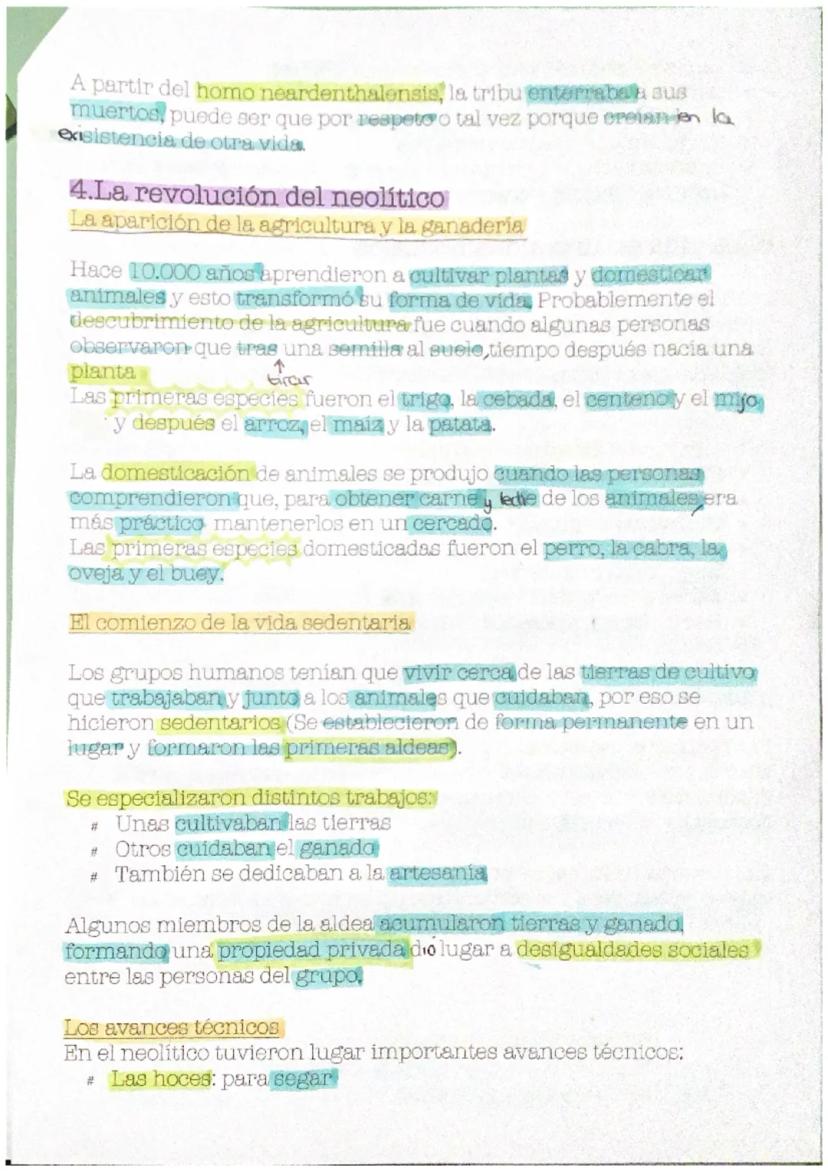 A partir del homo neardenthalensis, la tribu enterraba a sus
muertos, puede ser que por respeto o tal vez porque creían en la
existencia de otra vida.
4.La revolución del neolítico
La aparición de la agricultura y la ganadería
Hace 10.000 años aprendieron a cultivar plantas y domesticar
animales y esto transformó su forma de vida. Probablemente el
descubrimiento de la agricultura fue cuando algunas personas
observaron que tras una semilla al suelo, tiempo después nacía una
planta
tirar
Las primeras especies fueron el trigo, la cebada, el centeno y el mijo
y después el arroz, el maíz y la patata.
La domesticación de animales se produjo cuando las personas
comprendieron que, para obtener carne y leche de los animales, era
más práctico mantenerlos en un cercado.
Las primeras especies domesticadas fueron el perro, la cabra, la
oveja y el buey.
El comienzo de la vida sedentaria
Los grupos humanos tenían que vivir cerca de las tierras de cultivo
que trabajaban y junto a los animales que cuidaban, por eso se
hicieron sedentarios (Se establecieron de forma permanente en un
lugar y formaron las primeras aldeas).
Se especializaron distintos trabajos:
# Unas cultivaban las tierras
# Otros cuidaban el ganado
# También se dedicaban a la artesanía
Algunos miembros de la aldea acumularon tierras y ganado,
formando una propiedad privada dió lugar a desigualdades sociales
entre las personas del grupo.
Los avances técnicos
En el neolítico tuvieron lugar importantes avances técnicos:
# Las hoces: para segar